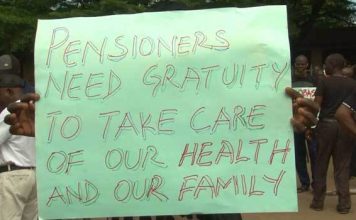 PENSIONERS
NEED GRATUITY
TO TAKE CARE
OF OUR HEALTH
AND OUR FAMILY